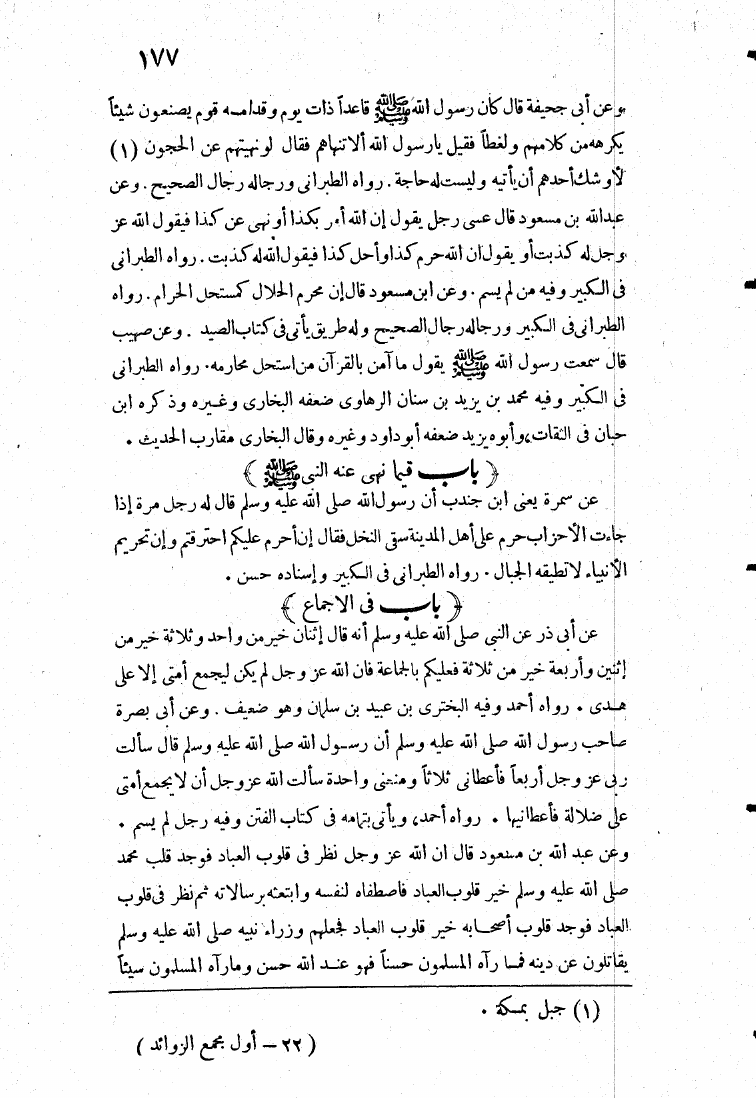 ١٧٧
وعن أبى جحيفة قال كان رسول الله ﷺ قاعداً ذات يوم وقدامه قوم يصنعون شيئاً
يكرهه من كلامهم ولغطاً فقيل يارسول الله ألاتنهاهم فقال لونهيتهم عن الحجون (١)
لأوشك أحدهم أن يأتيه وليست له حاجة. رواه الطبرانى ورجاله رجال الصحيح. وعن
عبدالله بن مسعود قال عسى رجل يقول إن الله أمر بكذا أونهى عن كذا فيقول الله عز
وجل له كذبت أو يقول ان الله حرم كذا وأحل كذا فيقول الله له كذبت. رواه الطبرانى
فى الكبير وفيه من لم يسم. وعن ابن مسعود قال إن محرم الحلال كمستحل الحرام. رواه
الطبرانى فى الكبير ورجاله رجال الصحيح وله طريق يأتى فى كتاب الصيد. وعن صهيب
قال سمعت رسول الله ﷺ يقول ما آمن بالقرآن من استحل محارمه. رواه الطبرانى
فى الكبير وفيه محمد بن يزيد بن سنان الرهاوى ضعفه البخارى وغيره وذكره ابن
حبان فى الثقات، وأبوه يزيد ضعفه أبو داود وغيره وقال البخارى مقارب الحديث.
﴿ باب فيما نهى عنه النبى ﷺ ﴾
عن سمرة يعنى ابن جندب أن رسول الله صلى الله عليه وسلم قال له رجل مرة إذا
جاءت الأحزاب حرم على أهل المدينة سقى النخل فقال إن أحرم عليكم احترقتم وإن تحريم
الأنبياء لا تطيقه الجبال. رواه الطبرانى فى الكبير وإسناده حسن.
﴿ باب فى الاجماع ﴾
عن أبى ذر عن النبى صلى الله عليه وسلم أنه قال إثنان خير من واحد وثلاثة خير من
إثنين وأربعة خير من ثلاثة فعليكم بالجماعة فان الله عز وجل لم يكن ليجمع أمتى إلا على
هدى. رواه أحمد وفيه البخترى بن عبيد بن سلمان وهو ضعيف. وعن أبى بصرة
صاحب رسول الله صلى الله عليه وسلم أن رسول الله صلى الله عليه وسلم قال سألت
ربى عز وجل أربعاً فأعطانى ثلاثاً ومنعنى واحدة سألت الله عز وجل أن لا يجمع أمتى
على ضلالة فأعطانيها. رواه أحمد، ويأتى بتمامه فى كتاب الفتن وفيه رجل لم يسم.
وعن عبد الله بن مسعود قال ان الله عز وجل نظر فى قلوب العباد فوجد قلب محمد
صلى الله عليه وسلم خير قلوب العباد فاصطفاه لنفسه وابتعثه برسالاته ثم نظر فى قلوب
العباد فوجد قلوب أصحابه خير قلوب العباد فجعلهم وزراء نبيه صلى الله عليه وسلم
يقاتلون عن دينه فما رآه المسلمون حسناً فهو عند الله حسن ومارآه المسلمون سيئاً
(١) جبل بمكة.
(٢٢ – أول مجمع الزوائد)